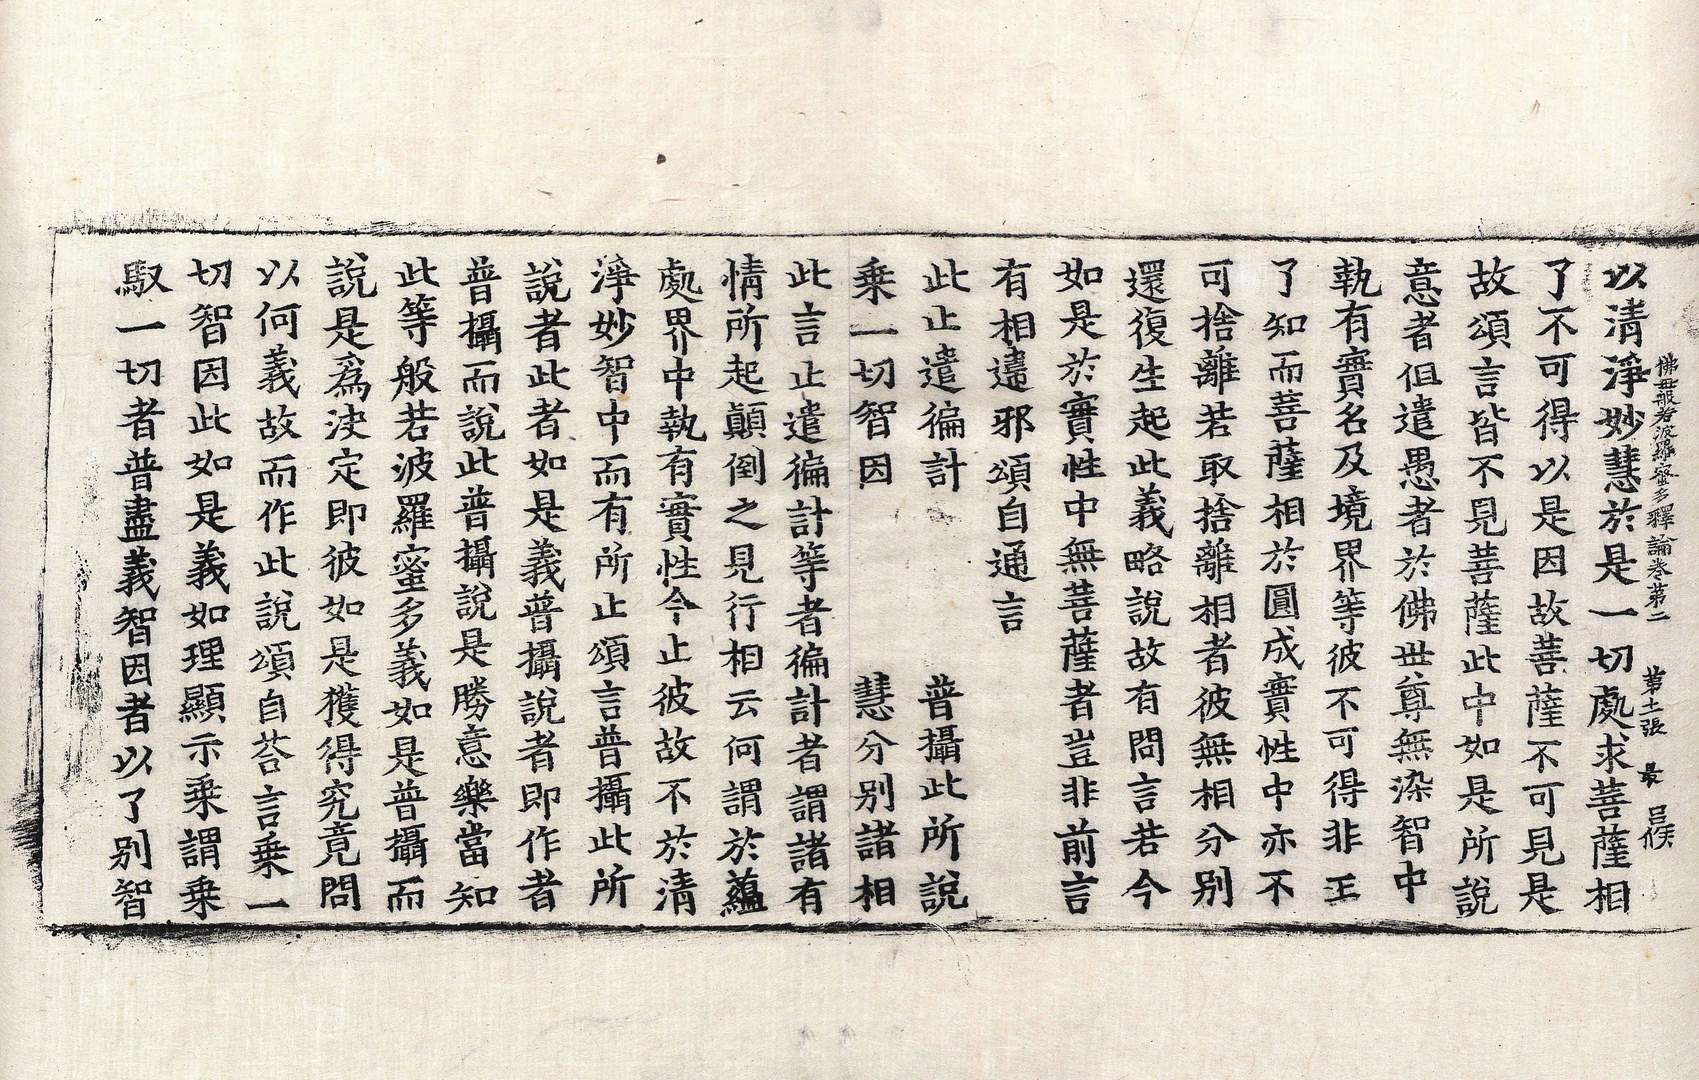 佛母般若波羅蜜多釋論卷第二 第十張 最 吕佚
以清淨妙慧於是一切處求菩薩相
了不可得以是因故菩薩不可見是
故頌言皆不見菩薩此中如是所說
意者但遣愚者於佛世尊無染智中
執有實名及境界等彼不可得非王
了知而菩薩相於圓成實性中亦不
可捨離若取捨離相者彼無相分別
還復生起此義略說故有問言若今
如是於實性中無菩薩者豈非前言
有相違邪頌自通言
此止遣徧計 普攝此所說
乗一切智因 慧分別諸相
此言止遣徧計等者徧計者謂諸有
情所起顛倒之見行相云何謂於蘊
處界中執有實性今止彼故不於清
淨妙智中而有所止頌言普攝此所
說者此者如是義普攝說者即作者
普攝而說此普攝說是勝意樂當知
此等般若波羅蜜多義如是普攝而
說是爲決定即彼如是獲得究竟問
以何義故而作此說頌自荅言乗一
切智因此如是義如理顯示乗謂乗
馭一切者普盡義智因者以了別智